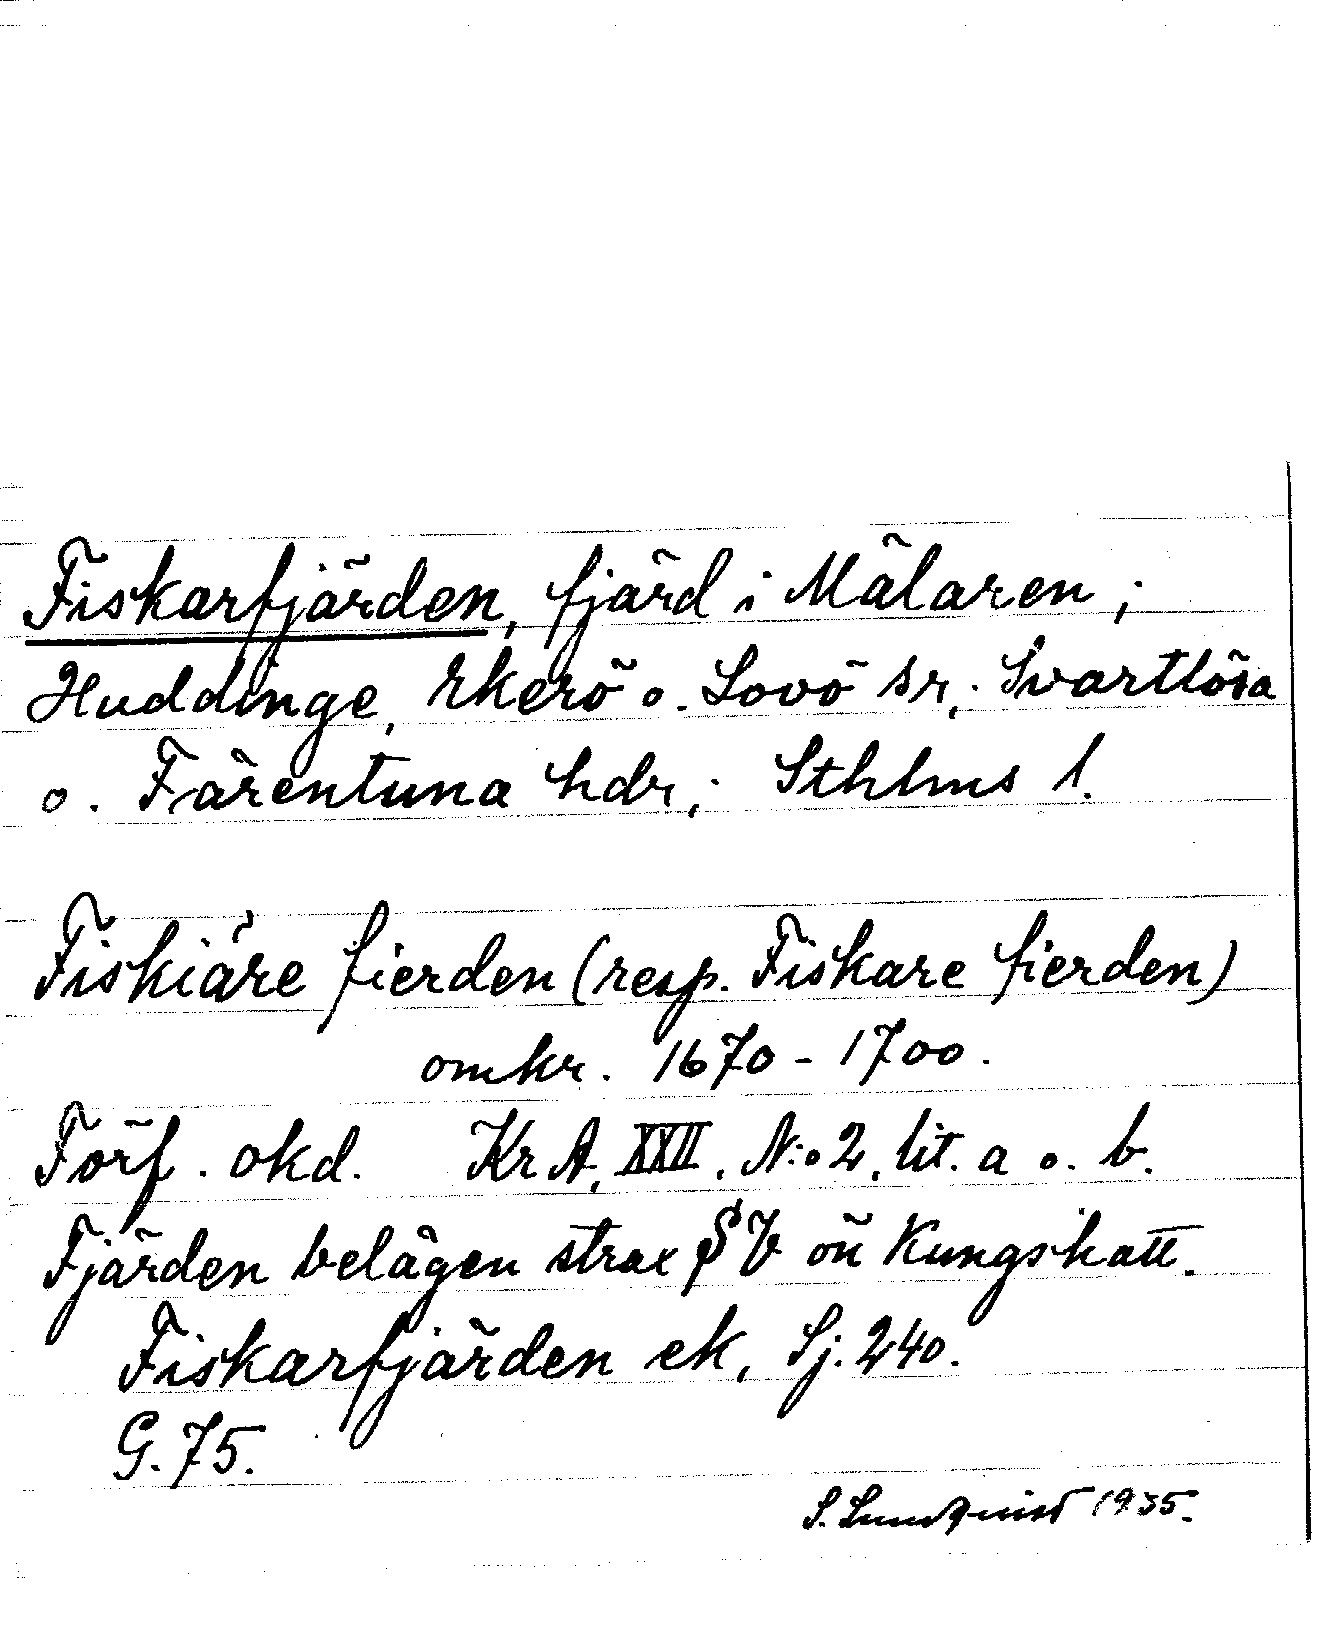 Fiskarfjärden, fjärd i Mälaren;
Huddinge, Ekerö o. Lovö sr,; Svartlösa
o. Färentuna hdr,; Sthlms l.
Fiskiäre fierden (resp. Fiskare fierden)
omkr. 1670-1700.
Förf. okd. KrA, XXII, N:o 2, lit. a o. b.
Fjärden belägen strax SV om Kungshatt.
Fiskarfjärden ek, Sj. 240.
G. 75.
S. Lundquist 1935.